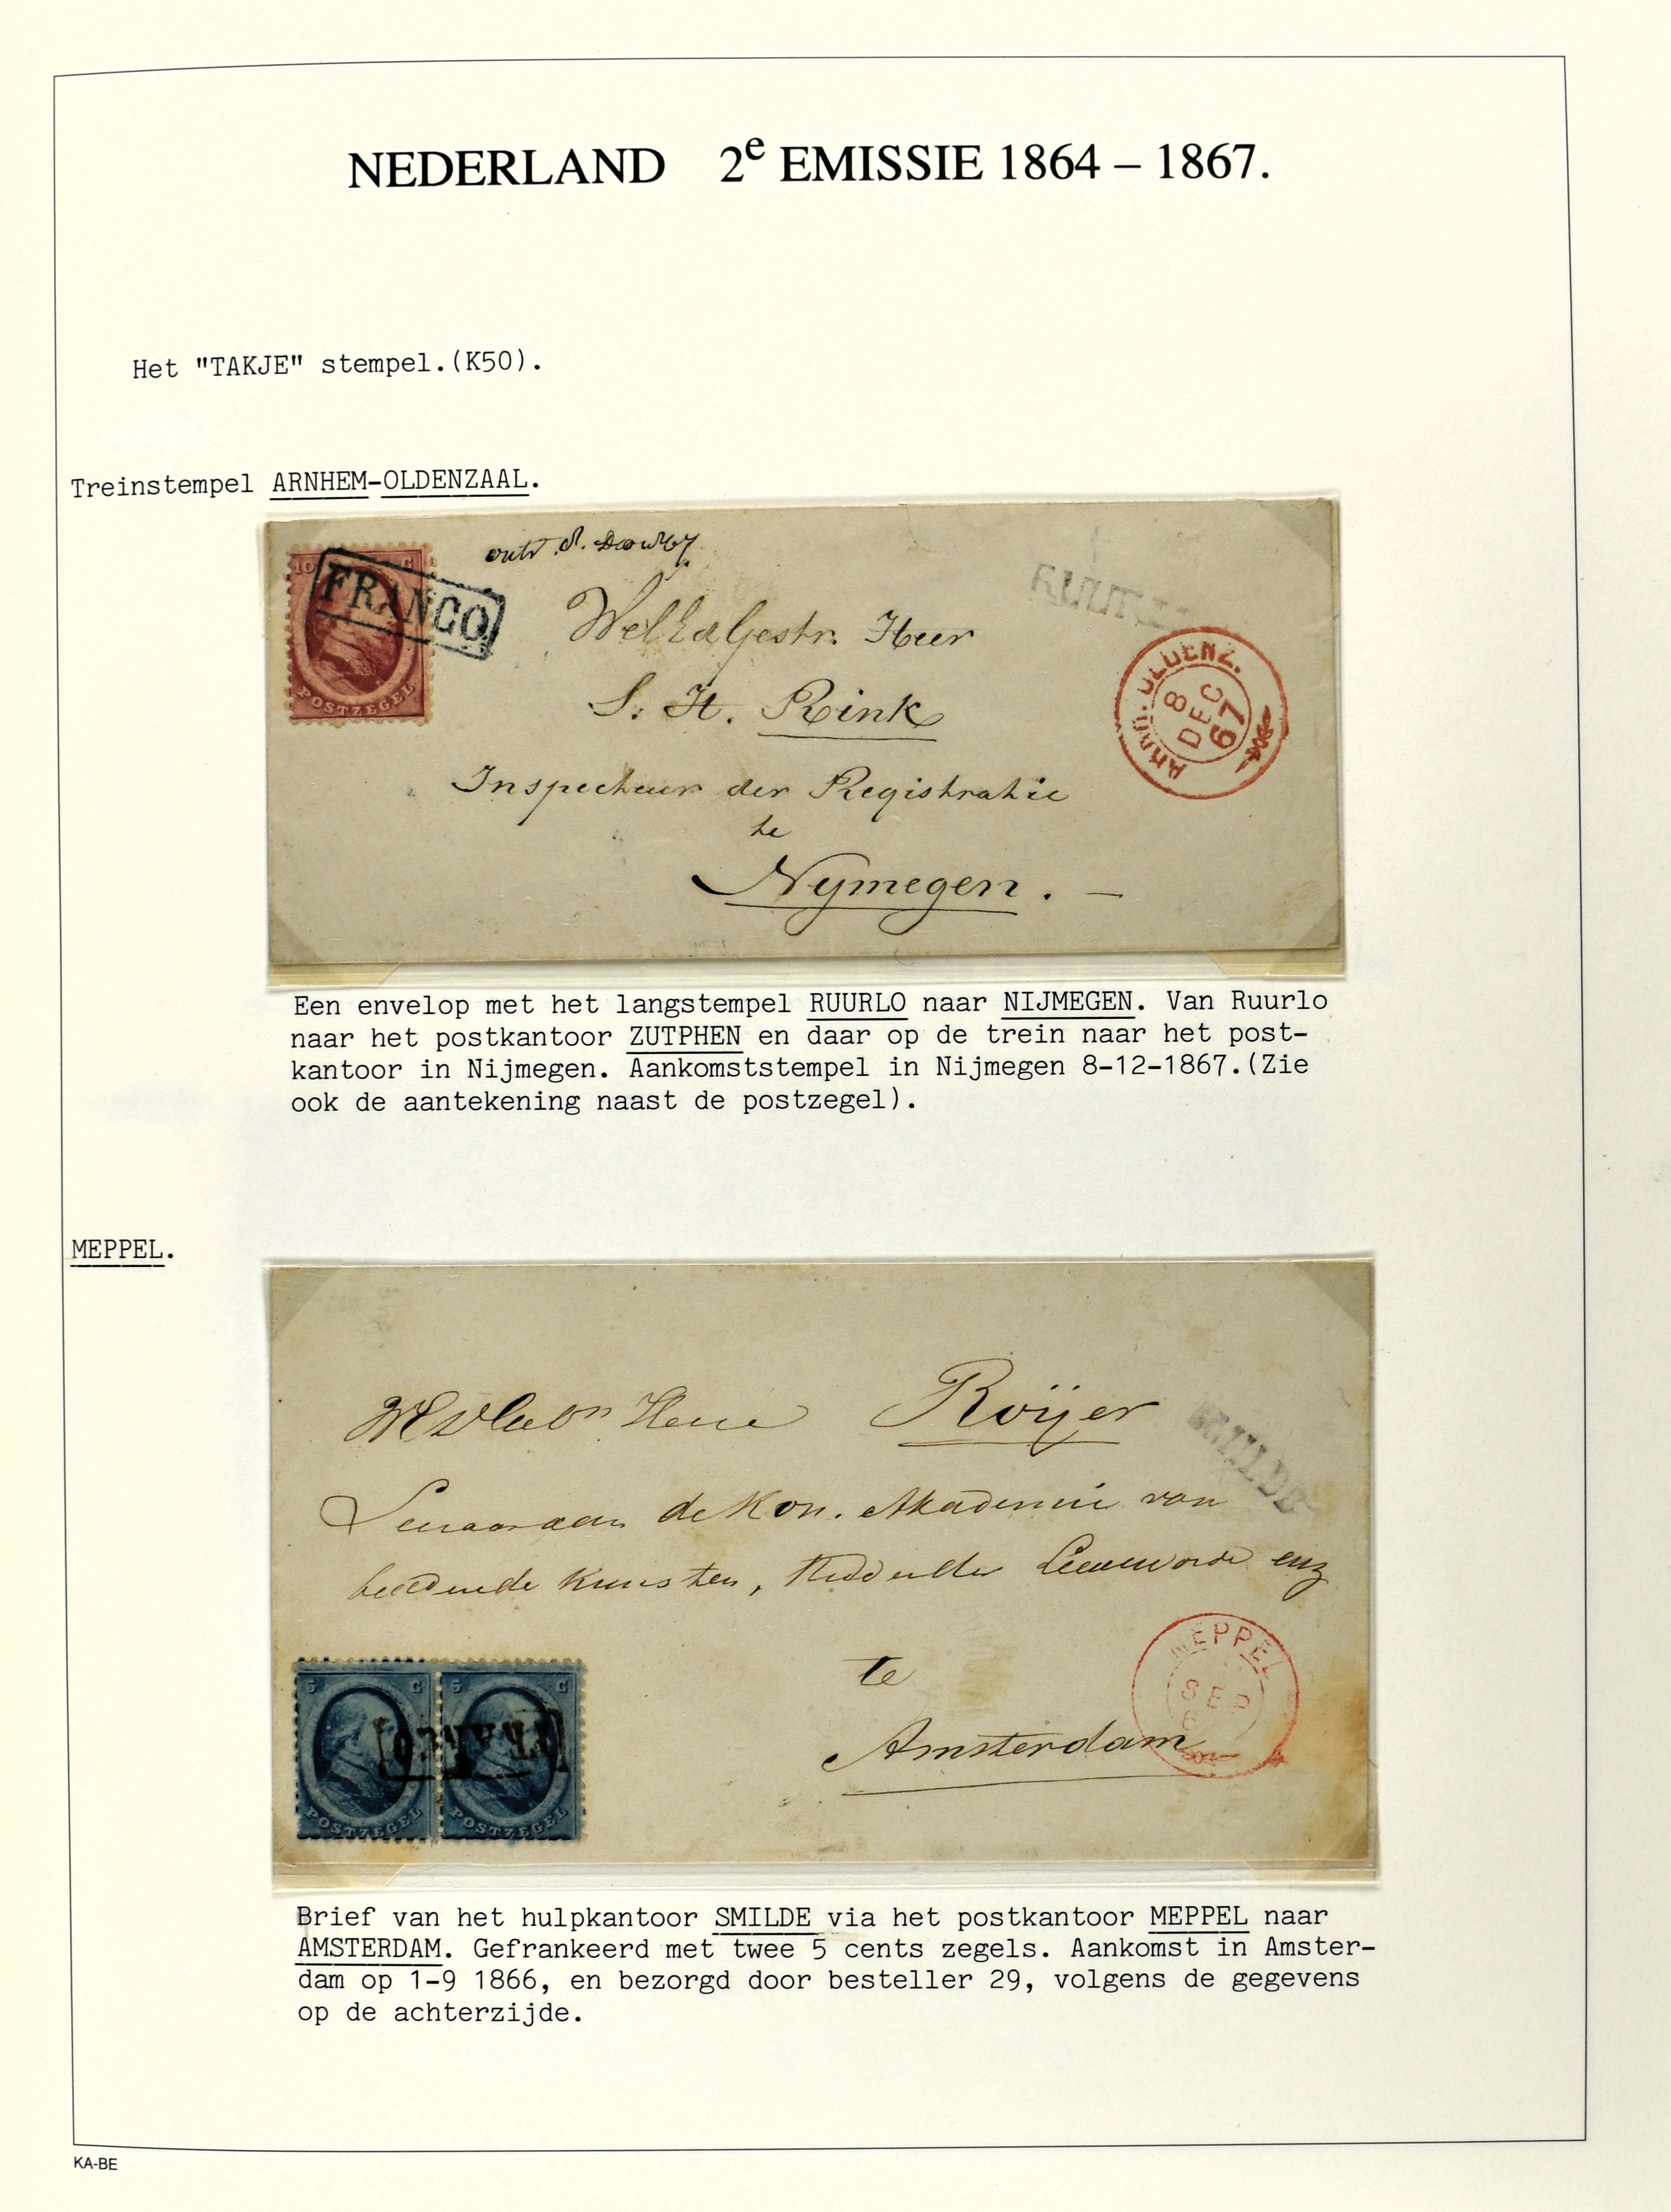 NEDERLAND 2e EMISSIE 1864 – 1867.
Het "TAKJE" stempel.(K50).
Treinstempel ARNHEM-OLDENZAAL.
10 C
FRANCO
POSTZEGEL
Heer
S. H. Rink
Inspecteur der Registratie
te
Nymegen. —
OLDENZ.
8
DEC
67
Een envelop met het langstempel RUURLO naar NIJMEGEN. Van Ruurlo
naar het postkantoor ZUTPHEN en daar op de trein naar het post-
kantoor in Nijmegen. Aankomststempel in Nijmegen 8-12-1867.(Zie
ook de aantekening naast de postzegel).
MEPPEL.
Roijer
SMILDE
de Kon. Akademie van
beeldende Kunsten, enz
te
Amsterdam
MEPPEL
SEP
5 C 5 C
FRANCO
POSTZEGEL POSTZEGEL
Brief van het hulpkantoor SMILDE via het postkantoor MEPPEL naar
AMSTERDAM. Gefrankeerd met twee 5 cents zegels. Aankomst in Amster-
dam op 1-9 1866, en bezorgd door besteller 29, volgens de gegevens
op de achterzijde.
KA-BE